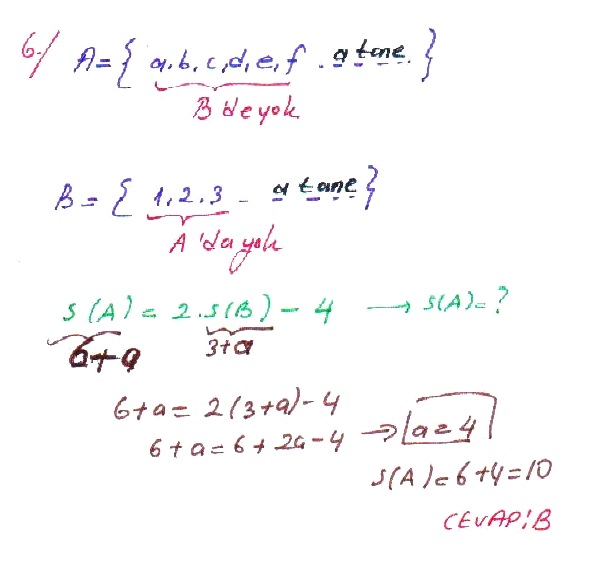 6/ A={ a,b,c,d,e,f . a tane. }
B'de yok
B = { 1,2,3 - a tane }
A'da yok
s(A) = 2.s(B) - 4 → s(A)=?
6+a 3+a
6+a = 2(3+a)-4
6+a=6+2a-4 → a=4
s(A)=6+4=10
CEVAP:B